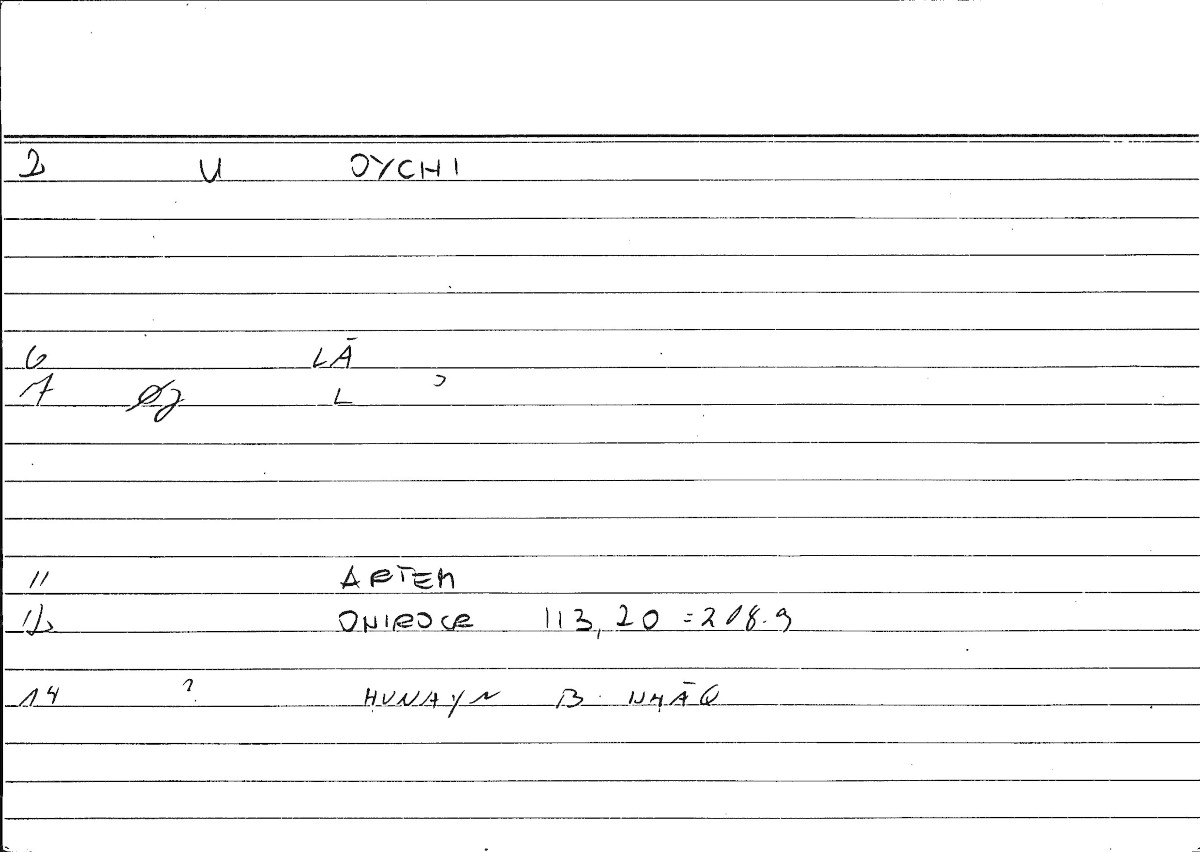 2 U OYCHI
6 LĀ
7 Øg L
11 ARTEM
12 ONIROCR 113,20 = 208.9
14 ? ḤUNAYN B.